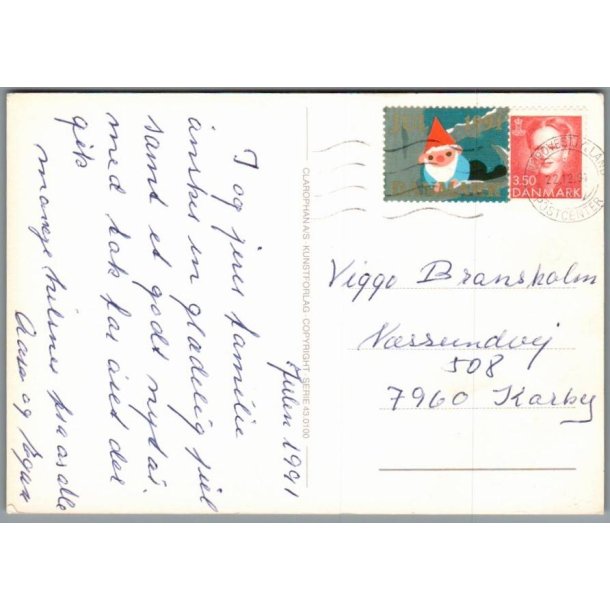 Julen 1991
I og jeres familie
ønskes en glædelig jul
samt et godt nytår.
med tak for året der
gik
mange hilsner fra os alle
og
CLAROPHAN A/S KUNSTFORLAG. COPYRIGHT. SERIE 43.0100
JUL 1991
DANMARK
3.50
DANMARK
22.12.91
POSTCENTER
Viggo Bransholm
Næssundvej
508
7960 Karby